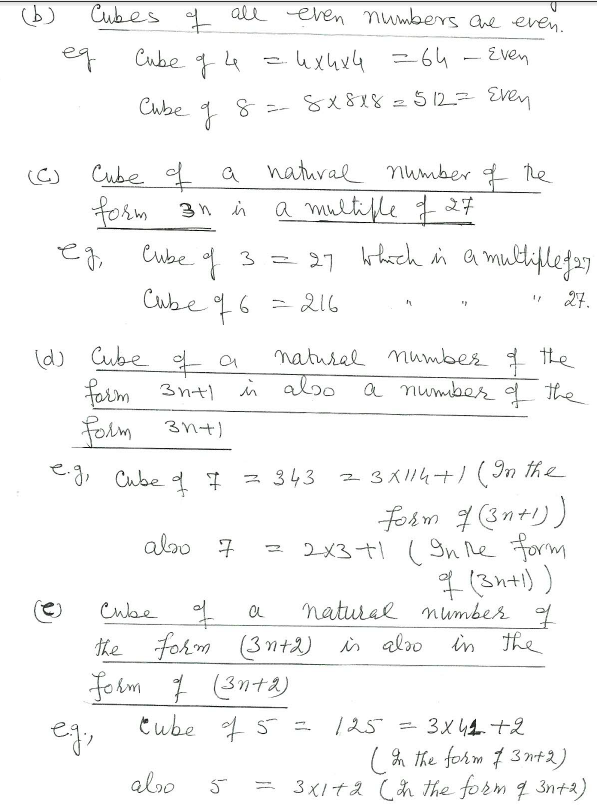 (b) Cubes of all even numbers are even.
eg Cube of 4 = 4x4x4 = 64 - Even
Cube of 8 = 8x8x8 = 512 = Even
(c) Cube of a natural number of the
form 3n is a multiple of 27
e.g, Cube of 3 = 27 which is a multiple of 27
Cube of 6 = 216 " " " 27.
(d) Cube of a natural number of the
form 3n+1 is also a number of the
form 3n+1
e.g, Cube of 7 = 343 = 3x114+1 (In the
form of (3n+1))
also 7 = 2x3+1 (In the form
of (3n+1))
(e) Cube of a natural number of
the form (3n+2) is also in the
form of (3n+2)
e.g., Cube of 5 = 125 = 3x41+2
(In the form of 3n+2)
also 5 = 3x1+2 (In the form of 3n+2)